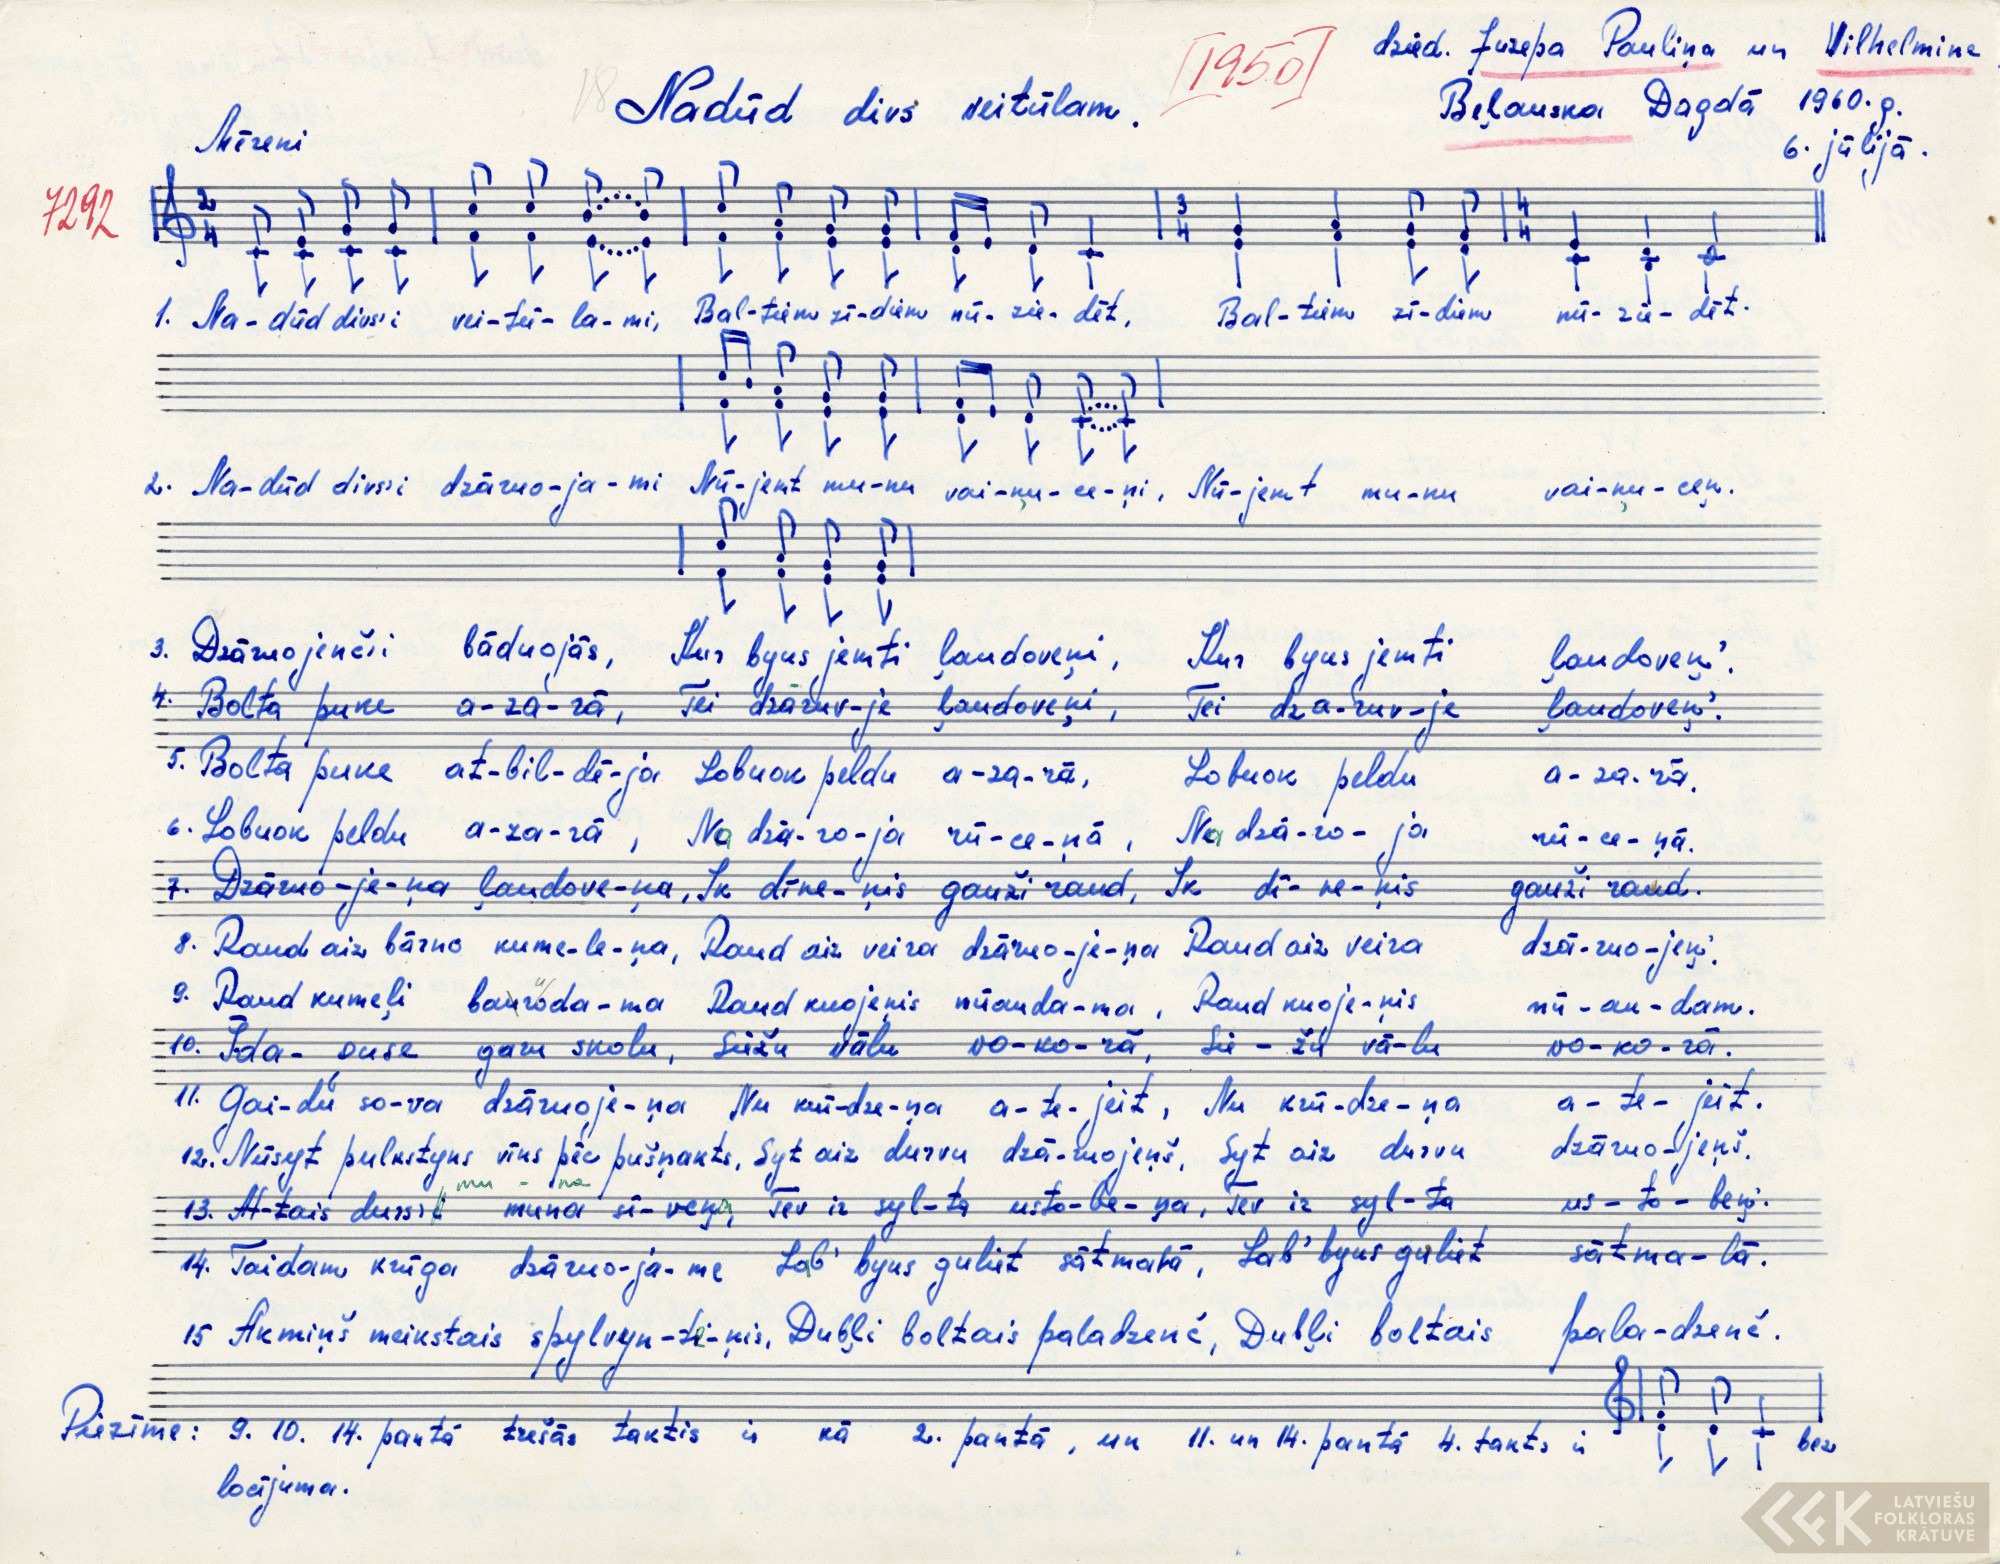 [1950]
dzied. Juzepa Pauliņa un Vilhelmine
18
Nadūd divs veitūlam.
Beļauska Dagdā 1960.g.
6. jūlijā.
Mēreni
7292
2/4 3/4 4/4
1. Na-dūd divsi vei-tū-la-mi, Bal-tiem zī-diem nū-zie-dēt, Bal-tiem zī-diem nū-zie-dēt.
2. Na-dūd divsi dzāruo-ja-mi Nū-jemt mu-nu vai-ņu-ce-ņi, Nū-jemt mu-nu vai-ņu-ceņ.
3. Dzāruojenči bāduojās, Kur byus jemti ļaudoveņi, Kur byus jemti ļaudoveņ'.
4. Bolta puke a-za-rā, Tei dzāruv-je ļaudoveņi, Tei dza-ruv-je ļaudoveņ'.
5. Bolta puke at-bil-dē-ja Lobuok peldu a-za-rā, Lobuok peldu a-za-rā.
6. Lobuok peldu a-za-rā, Na dzā-ro-ja rū-ce-ņā, Na dzā-ro-ja rū-ce-ņā.
7. Dzāruo-je-ņa ļaudove-ņa, Ik dīne-ņis gauži raud, Ik dī-ne-ņis gauži raud.
8. Raud aiz bārno kume-le-ņa, Raud aiz veira dzāruo-je-ņa Raud aiz veira dzā-ruo-jeņ'.
9. Raud kumeļi bauroda-ma Raud kuojeņis nūauda-ma, Raud kuoje-ņis nū-au-dam.
10. Īda-guse garu skolu, Sēžu vālu vo-ko-rā, Sē-žu vā-lu vo-ko-rā.
11. Gai-du so-va dzāruoje-ņa Nu krū-dze-ņa a-te-jeit, Nu krū-dze-ņa a-te-jeit.
12. Nūsyt pulkstyns vīns pēc pušņakts, Syt aiz durvu dzā-ruojeņš, Syt aiz durvu dzāruo-jeņš.
mu - na
13. At-tais dursi muna si-veņa, Tev ir syl-ta usto-be-ņa, Tev ir syl-ta us-to-beņ'.
14. Taidam krūga dzāruo-ja-me Lab' byus guliet sātmalā, Lab' byus guliet sātma-lā.
15 Akmiņš meikstais spylvyn-te-ņis, Dubļi boltais paladzenč, Dubļi boltais pala-dzenč.
Piezīme: 9. 10. 14. pantā trešās taktis ir kā 2. pantā, un 11. un 14. pantā 4. takts ir bez
locījuma.
LATVIEŠU
FOLKLORAS
KRĀTUVE